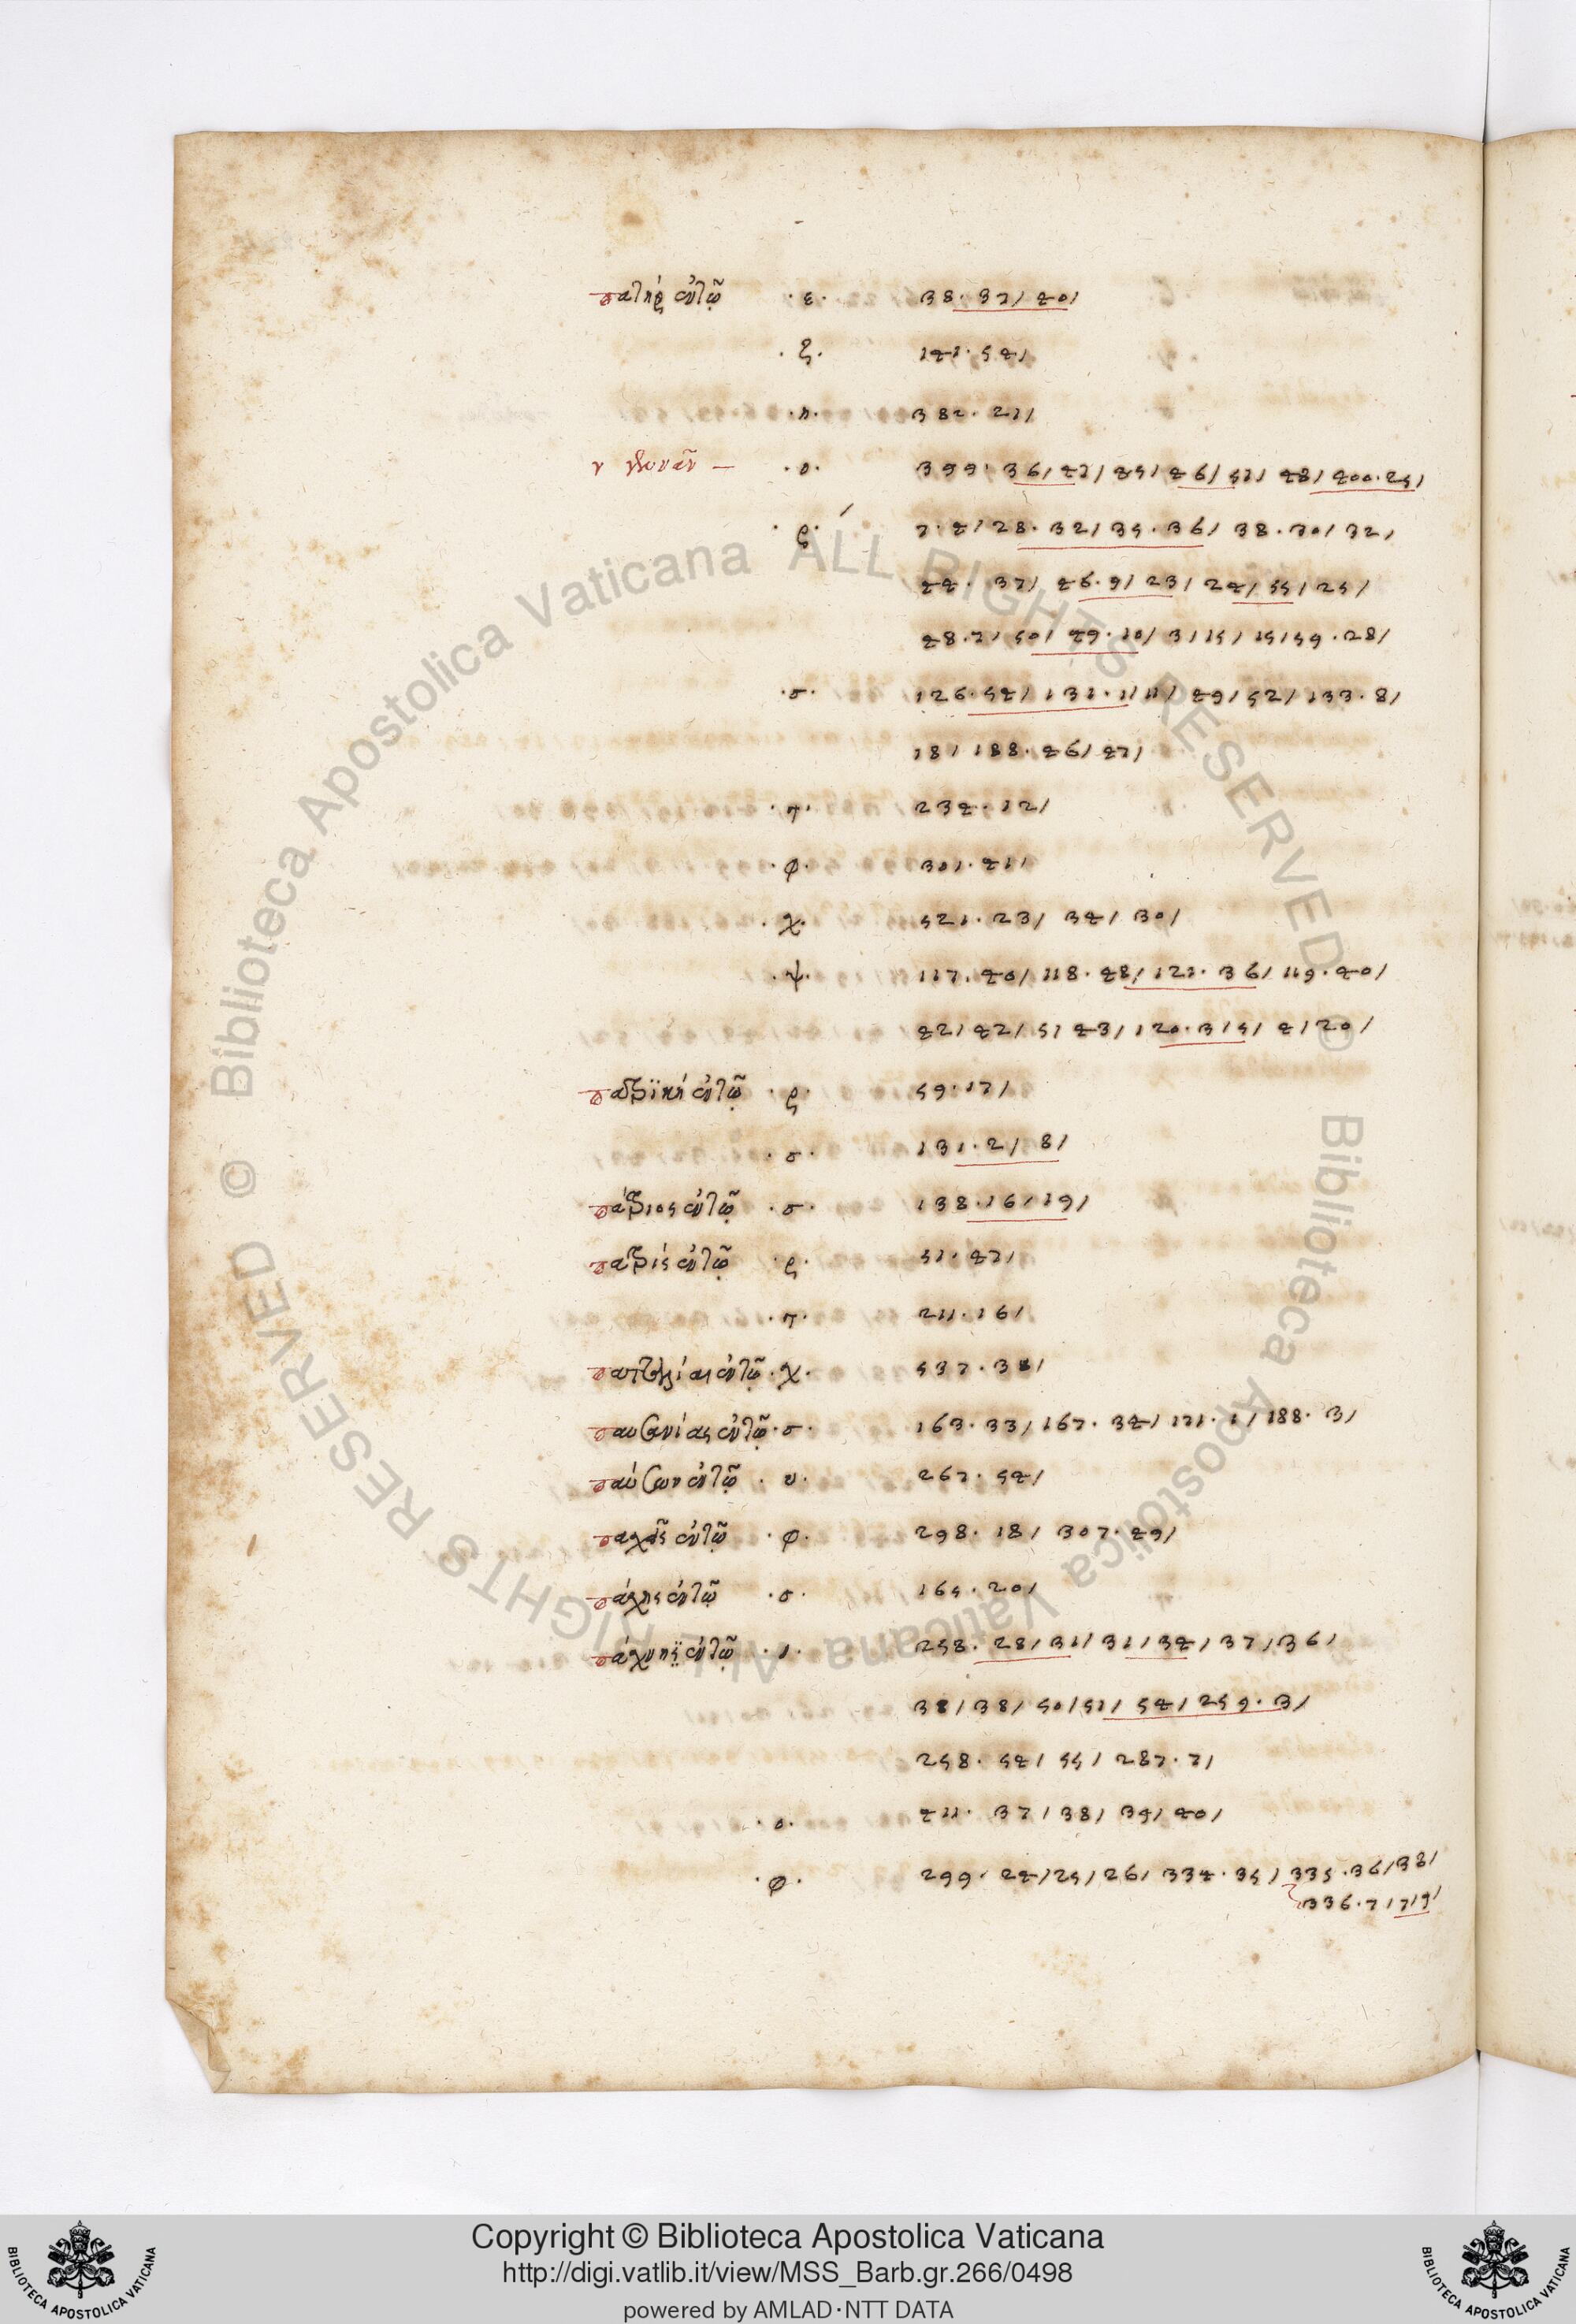 πατὴρ ἐν τῷ ·ε· 38. 37/ 40/
·ζ· 141. 54/
·η· 382. 21/
·ο· 399. 36/ 47/ 45/ 46/ 51/ 48/ 400. 25/
·ρ· 7. 4/ 28. 32/ 35. 36/ 38. 30/ 32/
44. 37/ 46. 9/ 23/ 24/ 55/ 25/
48. 7/ 50/ 49. 10/ 3/ 15/ 15/ 59. 28/
·σ· 126. 54/ 131. 1/ 11/ 49/ 52/ 133. 8/
18/ 188. 46/ 47/
·τ· 234. 12/
·φ· 301. 41/
·χ· 521. 23/ 34/ 30/
·ψ· 117. 40/ 118. 48/ 121. 36/ 119. 40/
42/ 42/ 5/ 43/ 120. 3/ 5/ 4/ 20/
πατρϊκὴ ἐν τῷ ·ρ· 59. 17/
·σ· 131. 2/ 8/
πάτριος ἐν τῷ ·σ· 138. 16/ 19/
πατρὶς ἐν τῷ ·ρ· 51. 47/
·τ· 211. 16/
ἐν τῷ ·χ· 537.
παυσανίας ἐν τῷ ·σ· 163. 33/ 167. 34/ 171. 1/ 188. 3/
παύσων ἐν τῷ ·υ· 267. 54/
ἐν τῷ ·φ· 298. 18/ 307. 49/
πάχης ἐν τῷ ·σ· 165. 20/
πάχνης ἐν τῷ ·ι· 258. 28/ 31/ 31/ 34/ 37/ 36/
38/ 38/ 50/ 51/ 54/ 259. 3/
258. 54/ 55/ 287. 7/
·ο· 411. 37/ 38/ 39/ 40/
·φ· 299. 24/ 25/ 26/ 334. 35/ 335. 36/ 38/
336. 7/ 7/ 9/
© Biblioteca Apostolica Vaticana ALL RIGHTS RESERVED
© Biblioteca Apostolica Vaticana ALL RIGHTS RESERVED
Copyright © Biblioteca Apostolica Vaticana
http://digi.vatlib.it/view/MSS_Barb.gr.266/0498
powered by AMLAD·NTT DATA
BIBLIOTECA APOSTOLICA VATICANA
BIBLIOTECA APOSTOLICA VATICANA